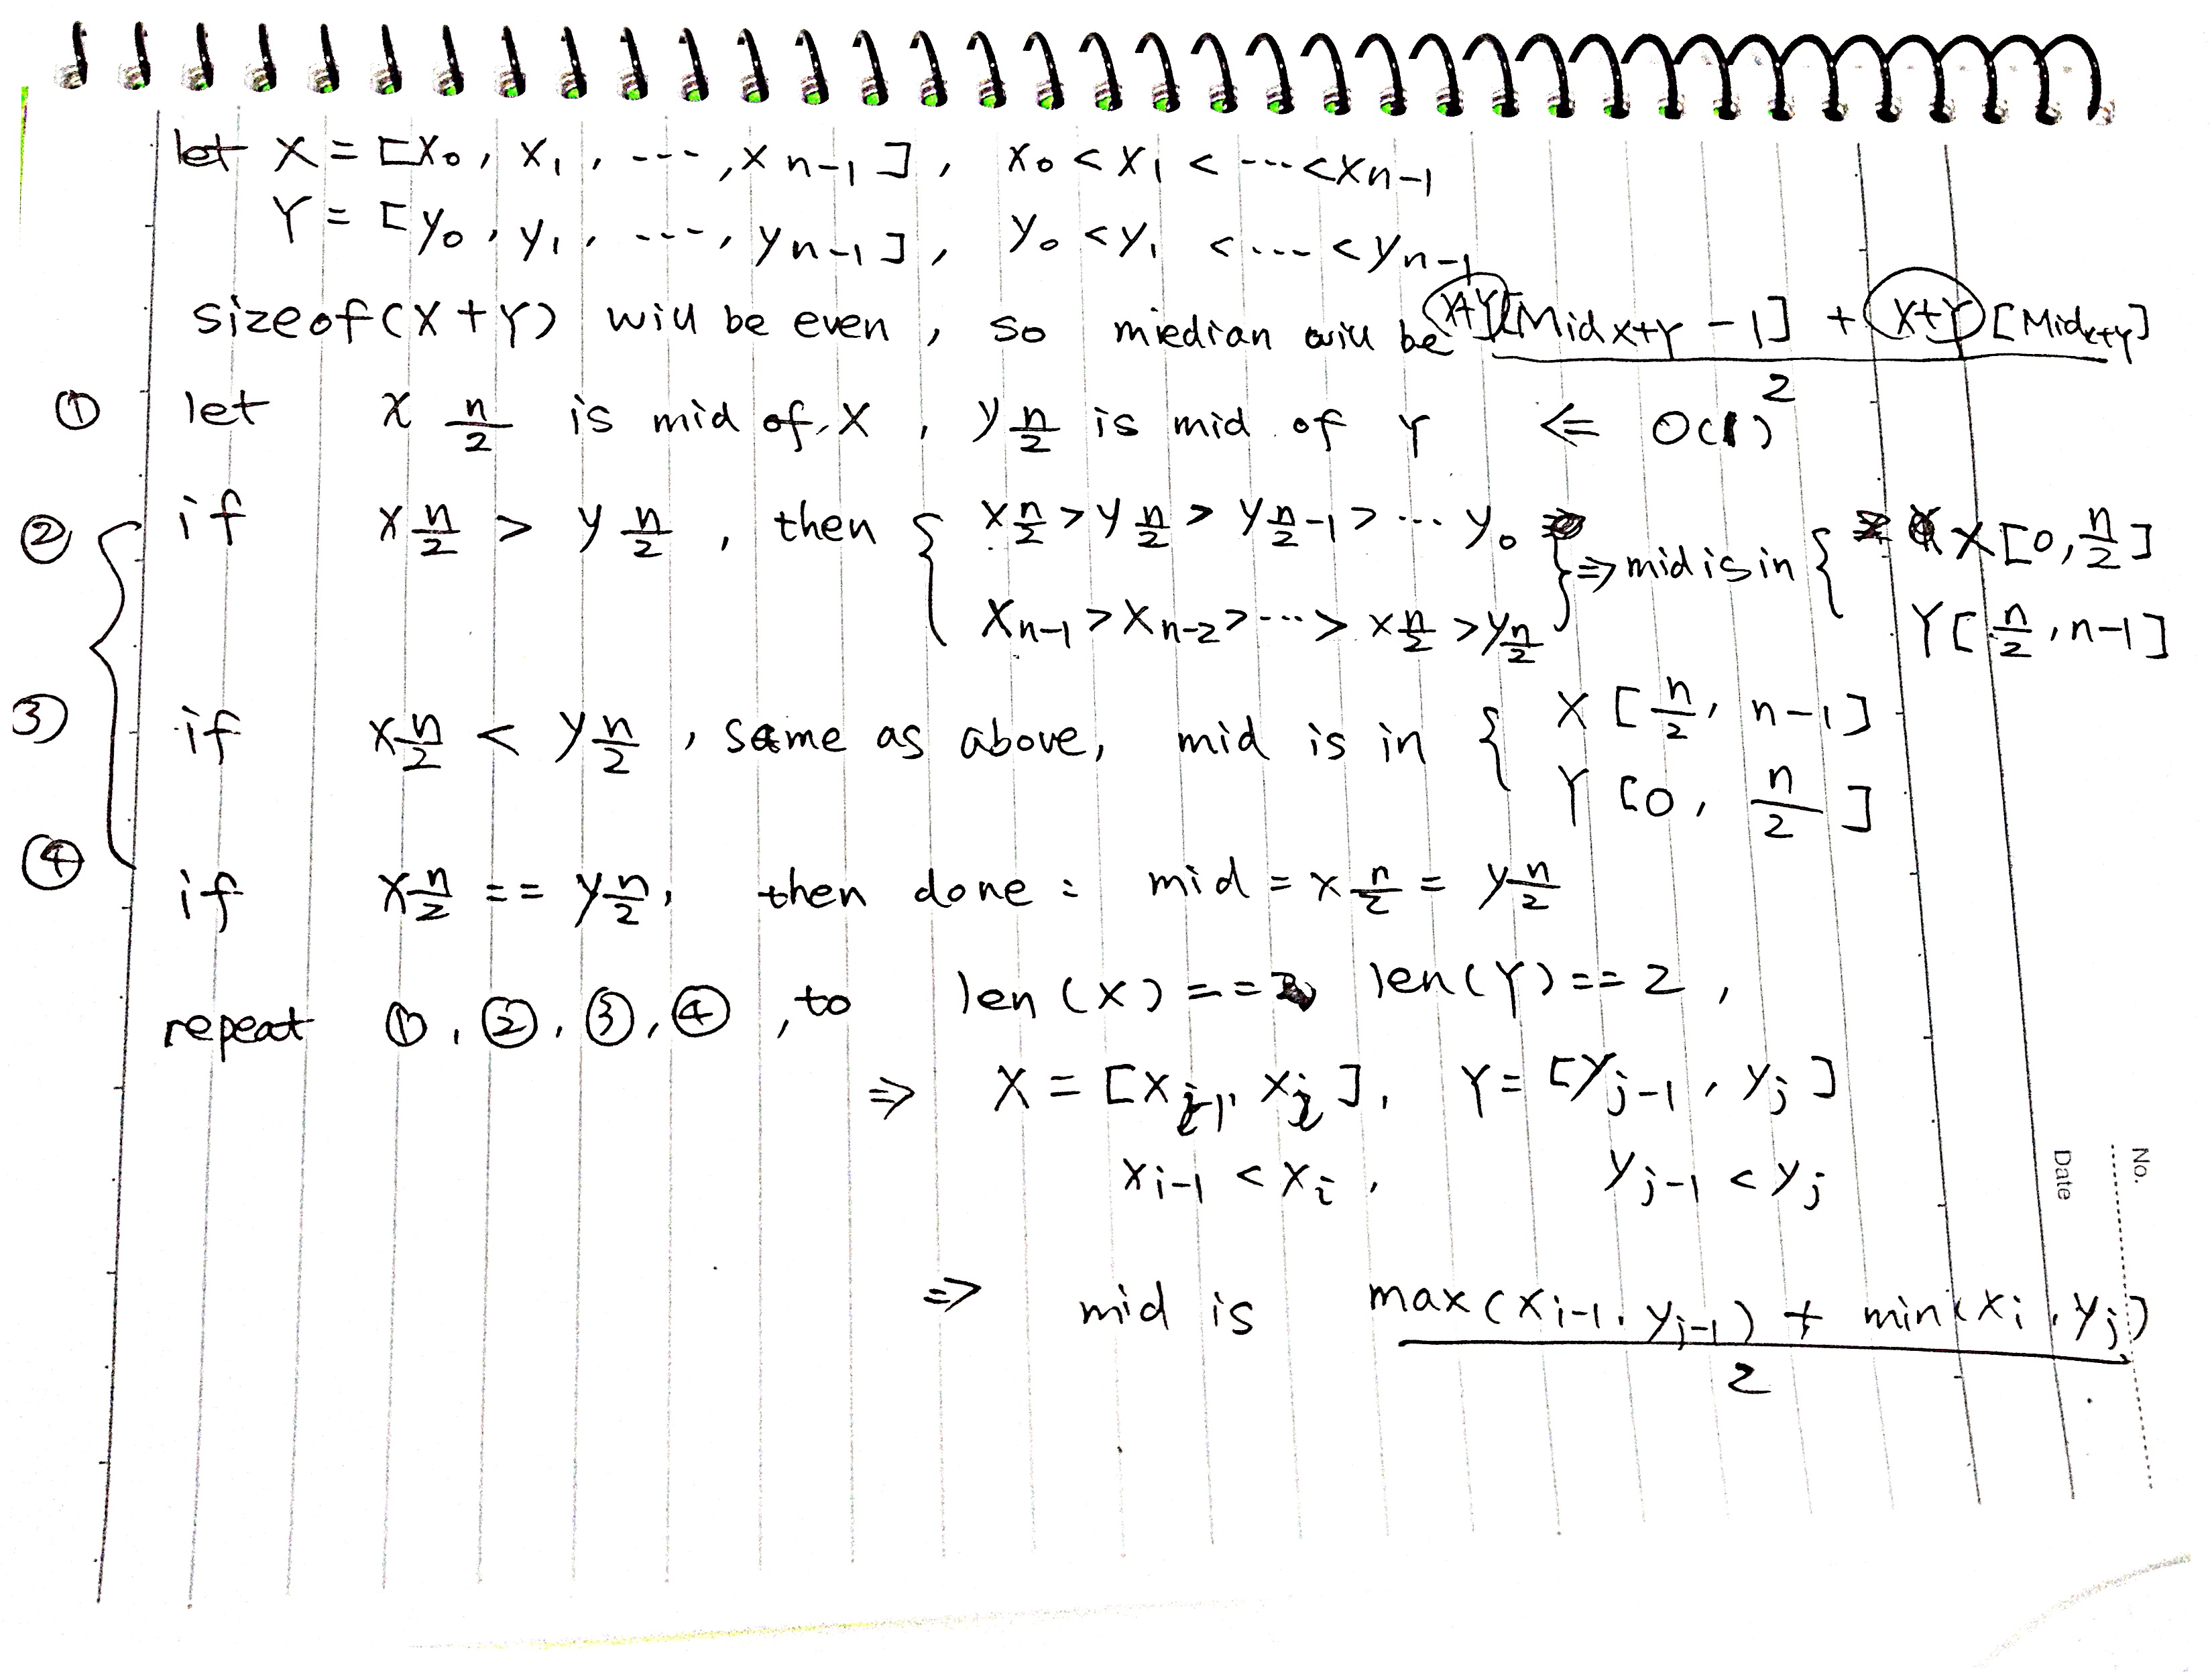 let X = [x₀, x₁, ---, xn-1], x₀ < x₁ < --- < xn-1
Y = [y₀, y₁, ---, yn-1], y₀ < y₁ < --- < yn-1
sizeof(X+Y) will be even, so miedian will be (X+Y[Mid x+Y - 1] + X+Y [Midx+y]) / 2
① let x n/2 is mid of X, y n/2 is mid of Y ⇐ O(1)
② if x n/2 > y n/2, then { x n/2 > y n/2 > y n/2-1 > ... y₀ } ⇒ mid is in { X[0, n/2]
xn-1 > xn-2 > ... > x n/2 > y n/2 Y[n/2, n-1]
③ if x n/2 < y n/2, same as above, mid is in { X [n/2, n-1]
Y [0, n/2]
④ if x n/2 == y n/2, then done: mid = x n/2 = y n/2
repeat ①, ②, ③, ④, to len(X) == len(Y) == 2,
⇒ X = [xi-1, xi], Y = [yj-1, yj]
xi-1 < xi, yj-1 < yj
⇒ mid is (max(xi-1, yj-1) + min(xi, yj)) / 2
No.
Date